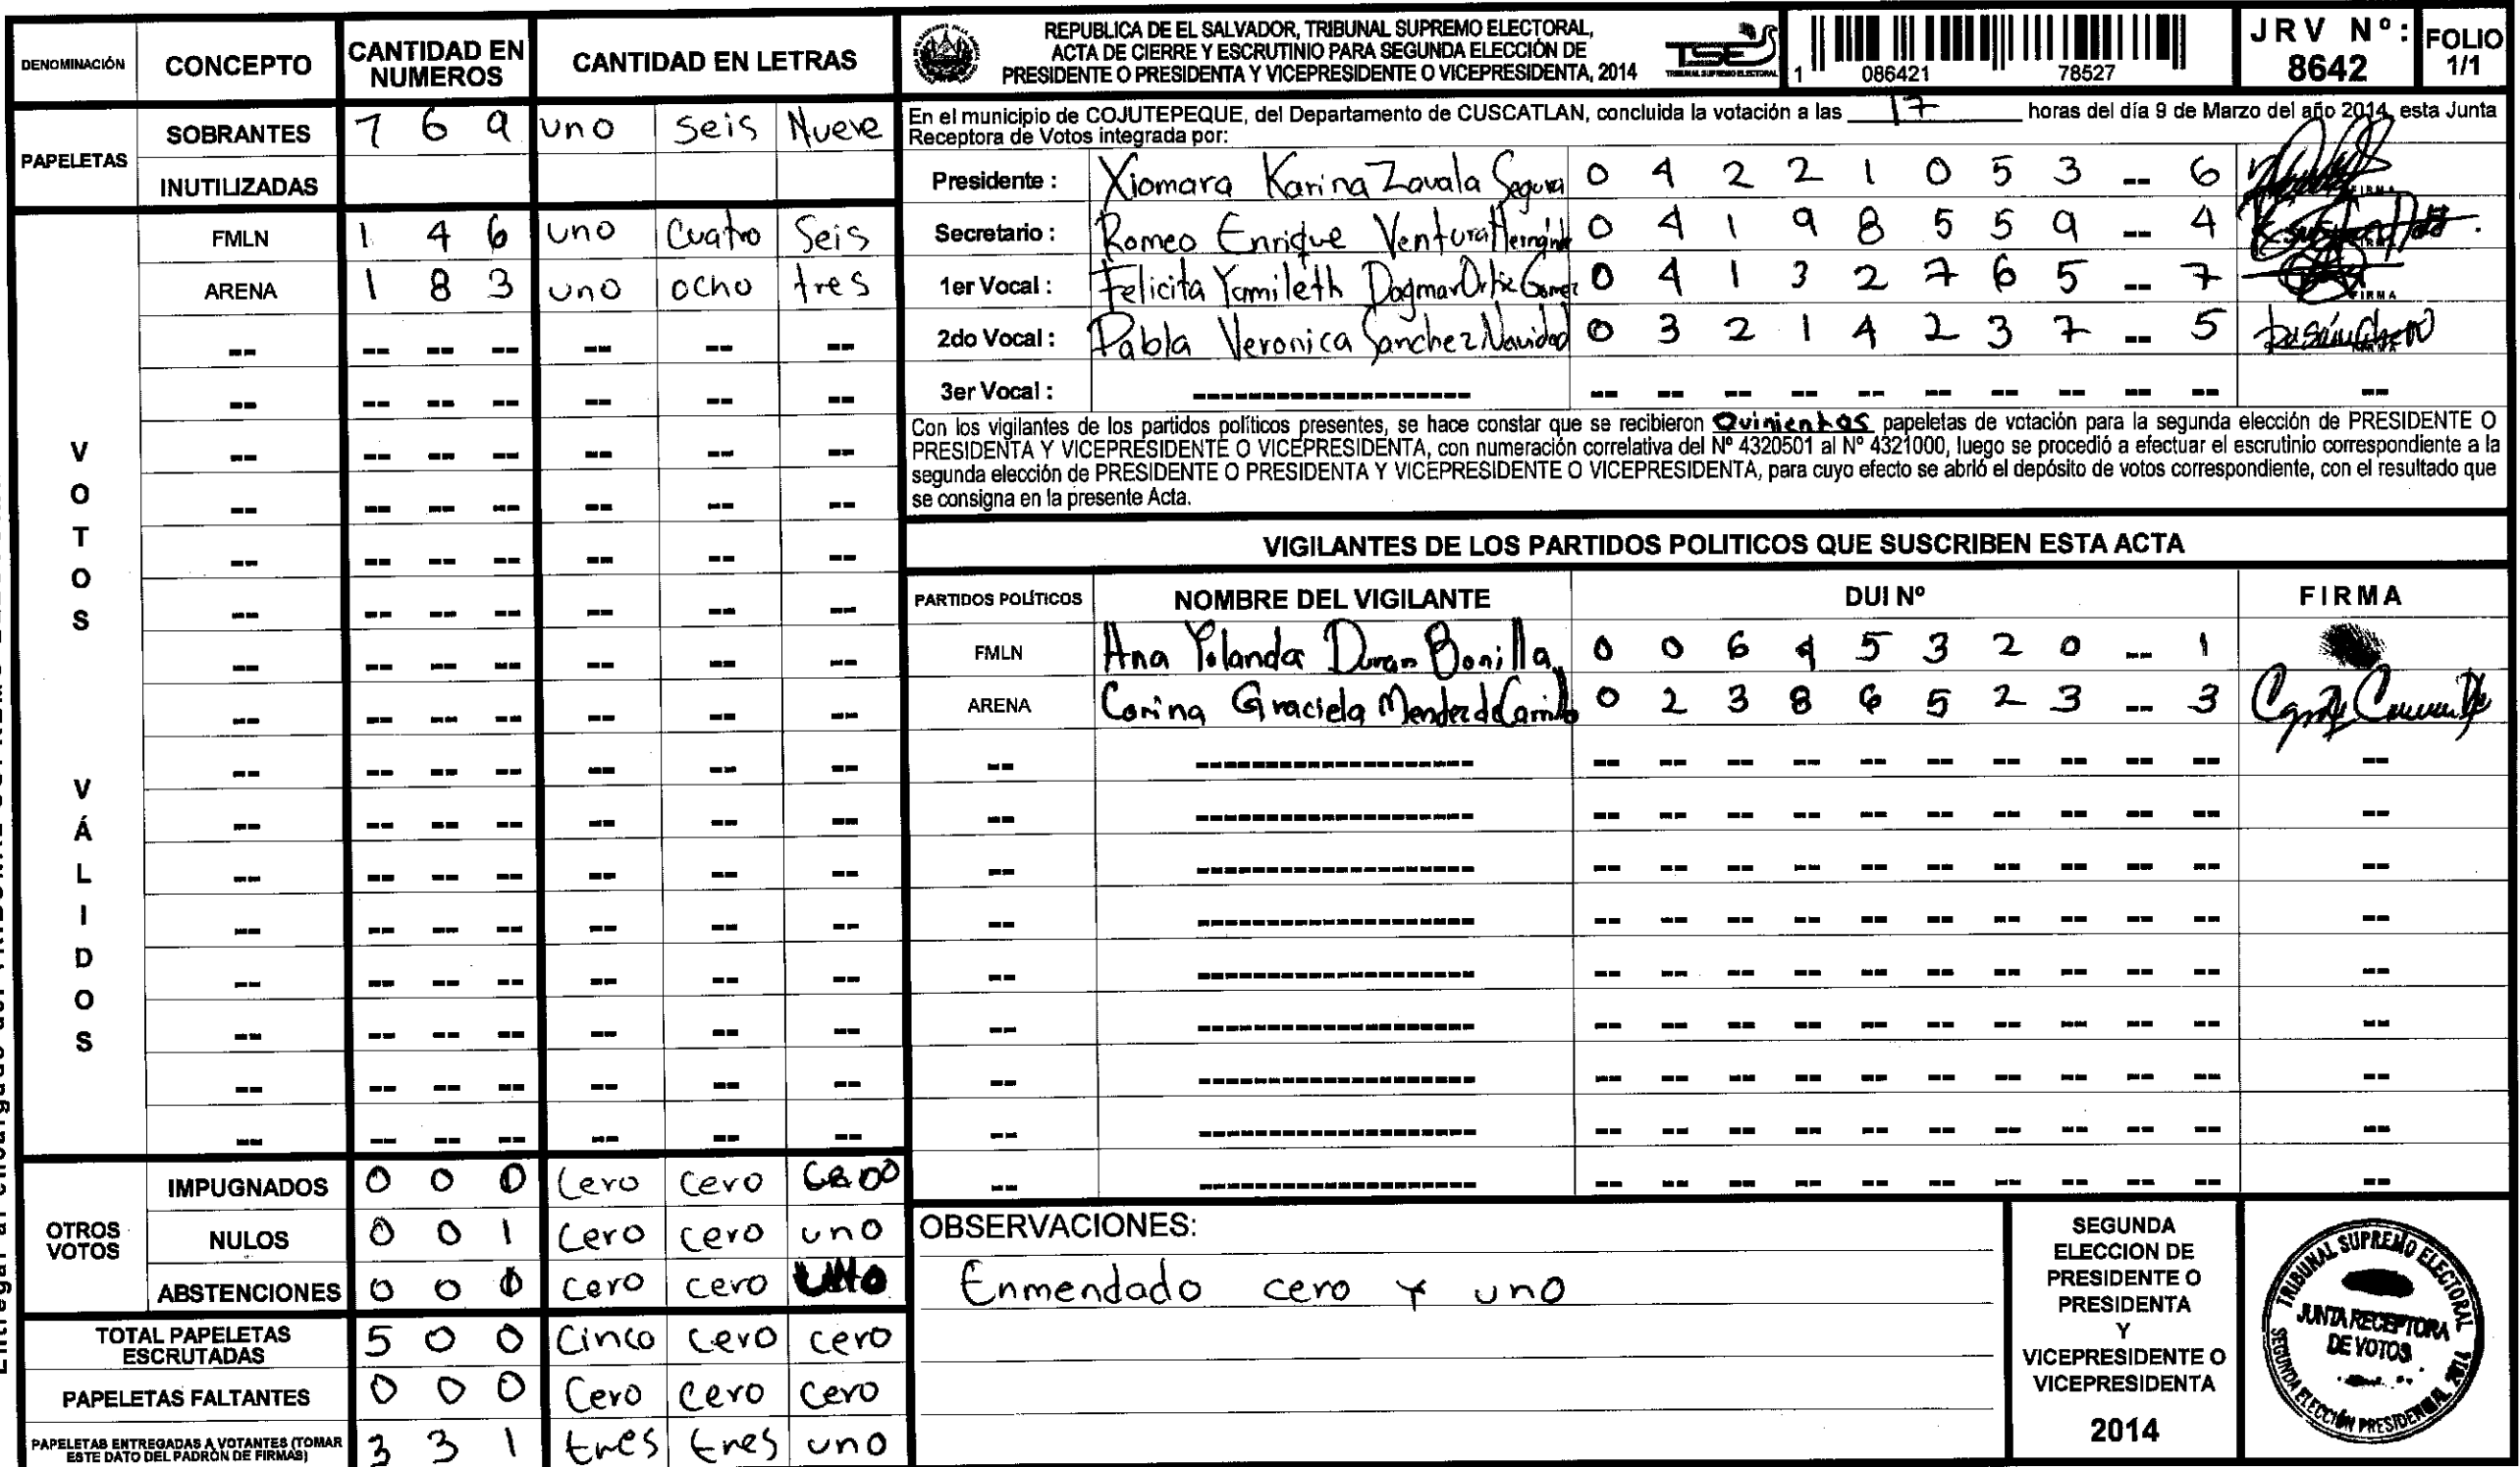 DENOMINACIÓN CONCEPTO CANTIDAD EN NUMEROS CANTIDAD EN LETRAS
PAPELETAS
SOBRANTES 7 6 9 uno seis Nueve
INUTILIZADAS
VOTOS VÁLIDOS
FMLN 1 4 6 uno cuatro seis
ARENA 1 8 3 uno ocho tres
OTROS VOTOS
IMPUGNADOS 0 0 0 cero cero cero
NULOS 0 0 1 cero cero uno
ABSTENCIONES 0 0 0 cero cero uno
TOTAL PAPELETAS ESCRUTADAS 5 0 0 Cinco cero cero
PAPELETAS FALTANTES 0 0 0 Cero cero cero
PAPELETAS ENTREGADAS A VOTANTES (TOMAR ESTE DATO DEL PADRÓN DE FIRMAS) 3 3 1 tres tres uno
REPUBLICA DE EL SALVADOR, TRIBUNAL SUPREMO ELECTORAL,
ACTA DE CIERRE Y ESCRUTINIO PARA SEGUNDA ELECCIÓN DE
PRESIDENTE O PRESIDENTA Y VICEPRESIDENTE O VICEPRESIDENTA, 2014
TSE
TRIBUNAL SUPREMO ELECTORAL
1 086421 78527
JRV Nº: 8642
FOLIO 1/1
En el municipio de COJUTEPEQUE, del Departamento de CUSCATLAN, concluida la votación a las 17 horas del día 9 de Marzo del año 2014, esta Junta
Receptora de Votos integrada por:
Presidente : Xiomara Karina Zavala Segura 0 4 2 2 1 0 5 3 -- 6
Secretario : Romeo Enrique Ventura Hernánd 0 4 1 9 8 5 5 9 -- 4
1er Vocal : Felicita Yamileth Dagmar Ortiz Gomez 0 4 1 3 2 7 6 5 -- 7
2do Vocal : Pabla Veronica Sanchez Navidad 0 3 2 1 4 2 3 7 -- 5
3er Vocal :
Con los vigilantes de los partidos políticos presentes, se hace constar que se recibieron Quinientos papeletas de votación para la segunda elección de PRESIDENTE O
PRESIDENTA Y VICEPRESIDENTE O VICEPRESIDENTA, con numeración correlativa del Nº 4320501 al Nº 4321000, luego se procedió a efectuar el escrutinio correspondiente a la
segunda elección de PRESIDENTE O PRESIDENTA Y VICEPRESIDENTE O VICEPRESIDENTA, para cuyo efecto se abrió el depósito de votos correspondiente, con el resultado que
se consigna en la presente Acta.
VIGILANTES DE LOS PARTIDOS POLITICOS QUE SUSCRIBEN ESTA ACTA
PARTIDOS POLÍTICOS NOMBRE DEL VIGILANTE DUI Nº FIRMA
FMLN Ana Yolanda Duran Bonilla 0 0 6 4 5 3 2 0 -- 1
ARENA Corina Graciela Mendez de Carrillo 0 2 3 8 6 5 2 3 -- 3
OBSERVACIONES:
Enmendado cero y uno
SEGUNDA
ELECCION DE
PRESIDENTE O
PRESIDENTA
Y
VICEPRESIDENTE O
VICEPRESIDENTA
2014
TRIBUNAL SUPREMO ELECTORAL
JUNTA RECEPTORA
DE VOTOS
SEGUNDA ELECCIÓN PRESIDENCIAL 2014